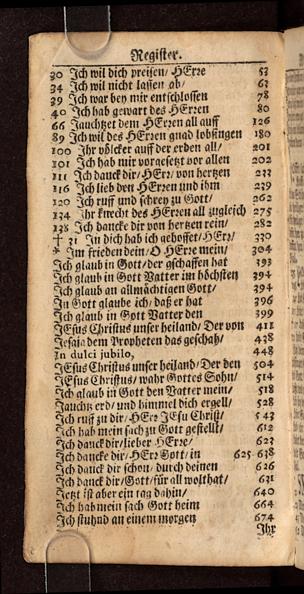 Register.
30 Ich wil dich preisen/ HErre 53
34 Ich wil nicht lassen ab/ 63
39 Ich war bey mir entschlossen 78
40 Ich hab gewart des HErren 80
66 Jauchtzet dem HErren all auff 126
89 Ich wil des HErren gnad lobsingen 180
100 Ihr völcker auff der erden all/ 201
101 Ich hab mir vorgesetzt vor allen 202
111 Ich danck dir/ HErr/ von hertzen 233
116 Ich lieb den HErren und ihm 239
120 Ich ruff und schrey zu Gott/ 262
134 Ihr knecht des HErren all zugleich 275
138 Ich dancke dir von hertzen rein/ 282
† 31 In dich hab ich gehoffet/ HErr/ 330
* Im frieden dein/ O HErre mein/ 304
Ich glaub in Gott/ der gschaffen hat 393
Ich glaub in Gott Vatter im höchsten 394
Ich glaub an allmächtigen Gott/ 394
In Gott glaube ich/ daß er hat 396
Ich glaub in Gott Vatter den 399
JEsus Christus unser heiland/ Der von 411
Jesaja dem Propheten das geschah/ 438
In dulci jubilo, 448
JEsus Christus unser heiland/ Der den 504
JEsus Christus/ wahr Gottes Sohn/ 514
Ich glaub in Gott den Vatter mein/ 518
Jauchtz erd/ und himmel dich ergell/ 528
Ich ruff zu dir/ HErr JEsu Christ/ 543
Ich hab mein sach zu Gott gestellt/ 612
Ich danck dir/ lieber HErre/ 623
Ich dancke dir/ HErr Gott/ in 625. 638
Ich danck dir schon/ durch deinen 626
Ich danck dir/ Gott/ für all wolthat/ 631
Jetzt ist aber ein tag dahin/ 640
Ich hab mein sach Gott heim 664
Ich stuhnd an einem morgen 674
Ihr